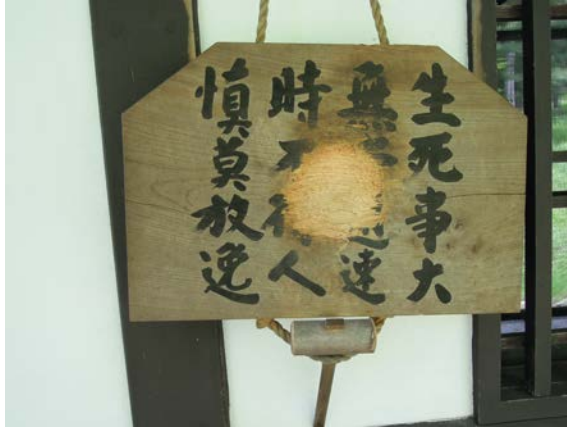 生死事大
無迅速
時不待人
慎莫放逸